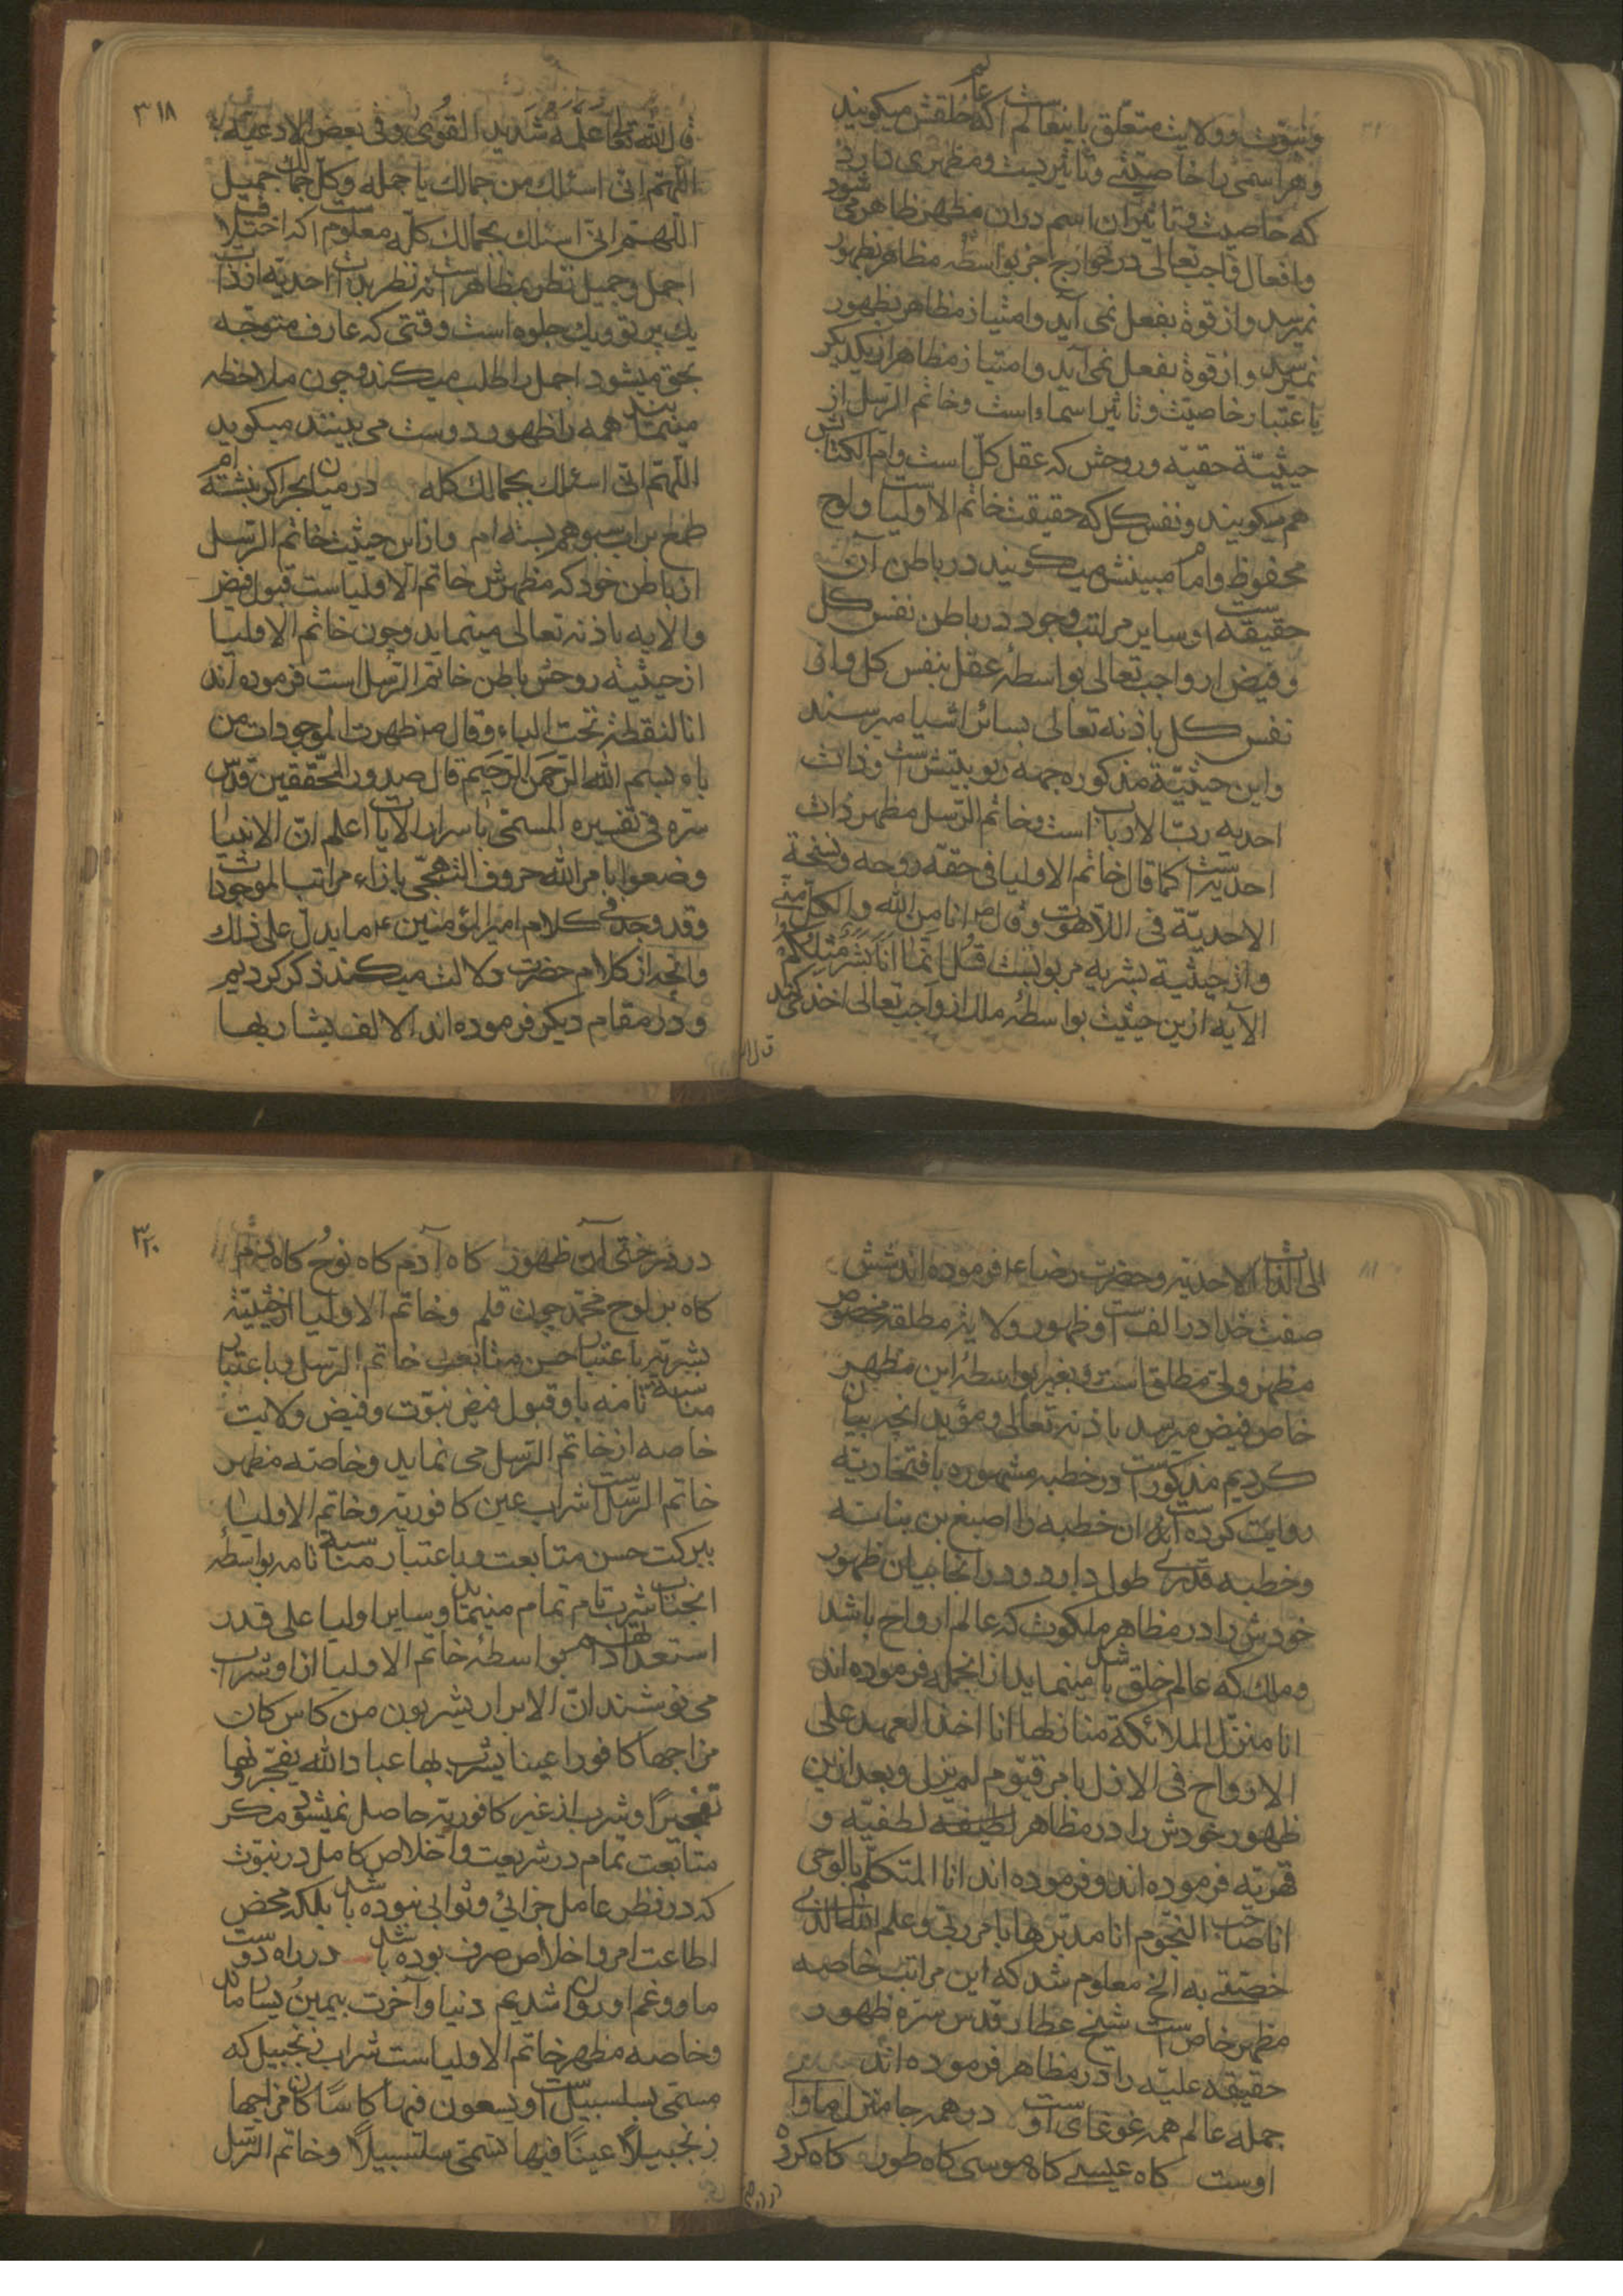 و نبوّت و ولایت متعلّق باینعالم است که عالم خلقش میکویند
و هر اسمی را خاصیّتی و تاثیریست و مظهری دارد
که خاصیت و تاثیر آن اسم در آن مظهر ظاهر می شود
و افعال واجب تعالی در خوارج اخر بواسطه مظاهر بظهور
نمیرسد و از قوة بفعل نمی آید و امتیاز مظاهر بظهور
نمیرسد و از قوة بفعل نمی آید و امتیاز مظاهر از یکدیکر
باعتبار خاصیّت و تاثیر اسماء است و خاتم الرّسل از
حیثیّة حقیّه و روحش که عقل کلّ است و امّ الکتابش
هم میکویند و نفس کل که حقیقت خاتم الاولیا است و لوح
محفوظ و امام مبینش میکویند در باطن آن
حقیقة است و سایر مراتب وجود در باطن نفس کل
و فیض از واجب تعالی بواسطۀ عقل بنفس کل و از
نفس کل باذنه تعالی بسائر اشیا میرسند
و این حیثیّة مذکوره جهة ربوبیّتش است و ذات
احدیه ربّ الارباب است و خاتم الرّسل مظهر ذات
احدیّت است کما قال خاتم الاولیا فی حقه روحه و نسخة
الاحدیّة فی اللاهوت و قال ص انا من الله و الکل منّی
و از حیثیة بشریه مربوبست قُل انّما اَنَا بَشَرٌ مِثلُکُم
الآیه ازین حیثیت بواسطۀ ملك از واجب تعالی اخذ کرد
قال الله
٣١٨
قال الله تعالی علّمه شدید القوی و فی بعض الادعیه
اللّهم انّی اسئلك من جمالك باجمله و کلّ جمالك جمیل
اللّهم انّی اسئلك بجمالك کلّه معلوم است که اختلاف
اجمل و جمیل نظر بمظاهر است نه نظر بذات احدیّه از ذات
یك پرتو و یك جلوه است وقتی که عارف متوجّه
بحق میشود اجمل را طلب میکند و چون ملاحظه
مینماید همه را ظهور دوست می بیند میکوید
اللّهم انّی اسئلك بجمالك کله در میان بحر اکر بنشسته ام
طمع بر آب سبو هم بسته ام و ازین حیثیت خاتم الرّسل
از باطن خود که مظهرش خاتم الاولیاست قبول فیض
ولایه باذنه تعالی مینماید و چون خاتم الاولیا
از حیثیة روحش باطن خاتم الرّسل است فرموده اند
انا النقطة تحت الباء و قال ص ظهرت الموجودات من
باء بسم الله الرّحمن الرّحیم قال صدور المحقّقین قدّس
سرّه فی تفسیره المسمّی باسرار الآیات اعلم انّ الانبیا
وضعوا بامر الله حروف التهجّی بازاء مراتب الموجودات
و قد وجد فی کلام امیر المؤمنین ع ما یدلّ علی ذلك
و آنچه از کلام حضرت دلالت میکند ذکر کردیم
و در مقام دیکر فرموده اند الالف یشار بها
الی الذّات الاحدیّه و حضرت رضا ع فرموده اند شش
صفت خدا در الف است و ظهور ولایة مطلقه مخصوص
مظهر ولیّ مطلق است و بغیر بواسطۀ این مظهر
خاص فیض میرسد باذنه تعالی و مؤید آنچه بیان
کردیم مذکور است در خطبه مشهوره بافتخاریّه
روایت کرده است آن خطبه را اصبغ بن بناته
و خطبه قدری طول دارد و در آنجا بیان ظهور
خودش را در مظاهر ملکوت که عالم ارواح باشد
و ملك که عالم خلق باشد مینماید از آنجمله فرموده اند
انا منزّل الملائکة منازلها انا اخذ العهد علی
الارواح فی الازل بامر قیّوم لم یزل و بعد ازین
ظهور خودش را در مظاهر لطیفه لطفیّه و
قهریّه فرموده اند و فرموده اند انا المتکلّم بالوحی
انا صاحب النجّوم انا مدبّرها بامر ربّی و علم الله الذی
خصّنی به الخ معلوم شد که این مراتب خاصه
مظهر خاص است شیخ عطار قدس سرّه ظهور
حقیقه علیّه را در مظاهر فرموده اند
جمله عالم همه غوغای اوست در همه جا منزل و ماوای
اوست کاه عیسی کاه موسی کاه طور کاه کرده
٣٢٠
در درختی آن ظهور کاه آدم کاه نوح کاه
کاه بر لوح محمّد چون قلم و خاتم الاولیا از حیثیّة
بشریّه باعتبار حسن متابعت خاتم الرّسل و باعتبار
مناسبة تامه باو قبول فیض نبوّت و فیض ولایت
خاصه از خاتم الرّسل می نماید و خاصّه مظهر
خاتم الرّسل است شراب عین کافوریّه و خاتم الاولیا
ببرکت حسن متابعت و باعتبار مناسبة تامه بواسطۀ
آنجناب شرب تام تمام مینماید و سایر اولیا علی قدر
استعدادهم بواسطۀ خاتم الاولیا از او شراب
می نوشند انّ الابرار یشربون من کاس کان
مزاجها کافورا عینا یشرب بها عباد الله یفجّرونها
تفجیرًا و شراب از غیر کافوریّه حاصل نمیشود مکر
متابعت تمام در شریعت و اخلاص کامل در نبوّت
که در نظر عامل جزائی و ثوابی نبوده باشد بلکه محض
اطاعت امر و اخلاص صرف بوده باشد در راه دوست
ما و غم او روان شدیم دنیا و آخرت بیمین و یسار ماند
و خاصه مظهر خاتم الاولیاست شراب زنجبیل که
مسمّی بسلسبیل است و یسعون فیها کاسًا کان مزاجها
زنجبیلًا عینًا فیها تسمّی سلسبیلًا و خاتم الرّسل